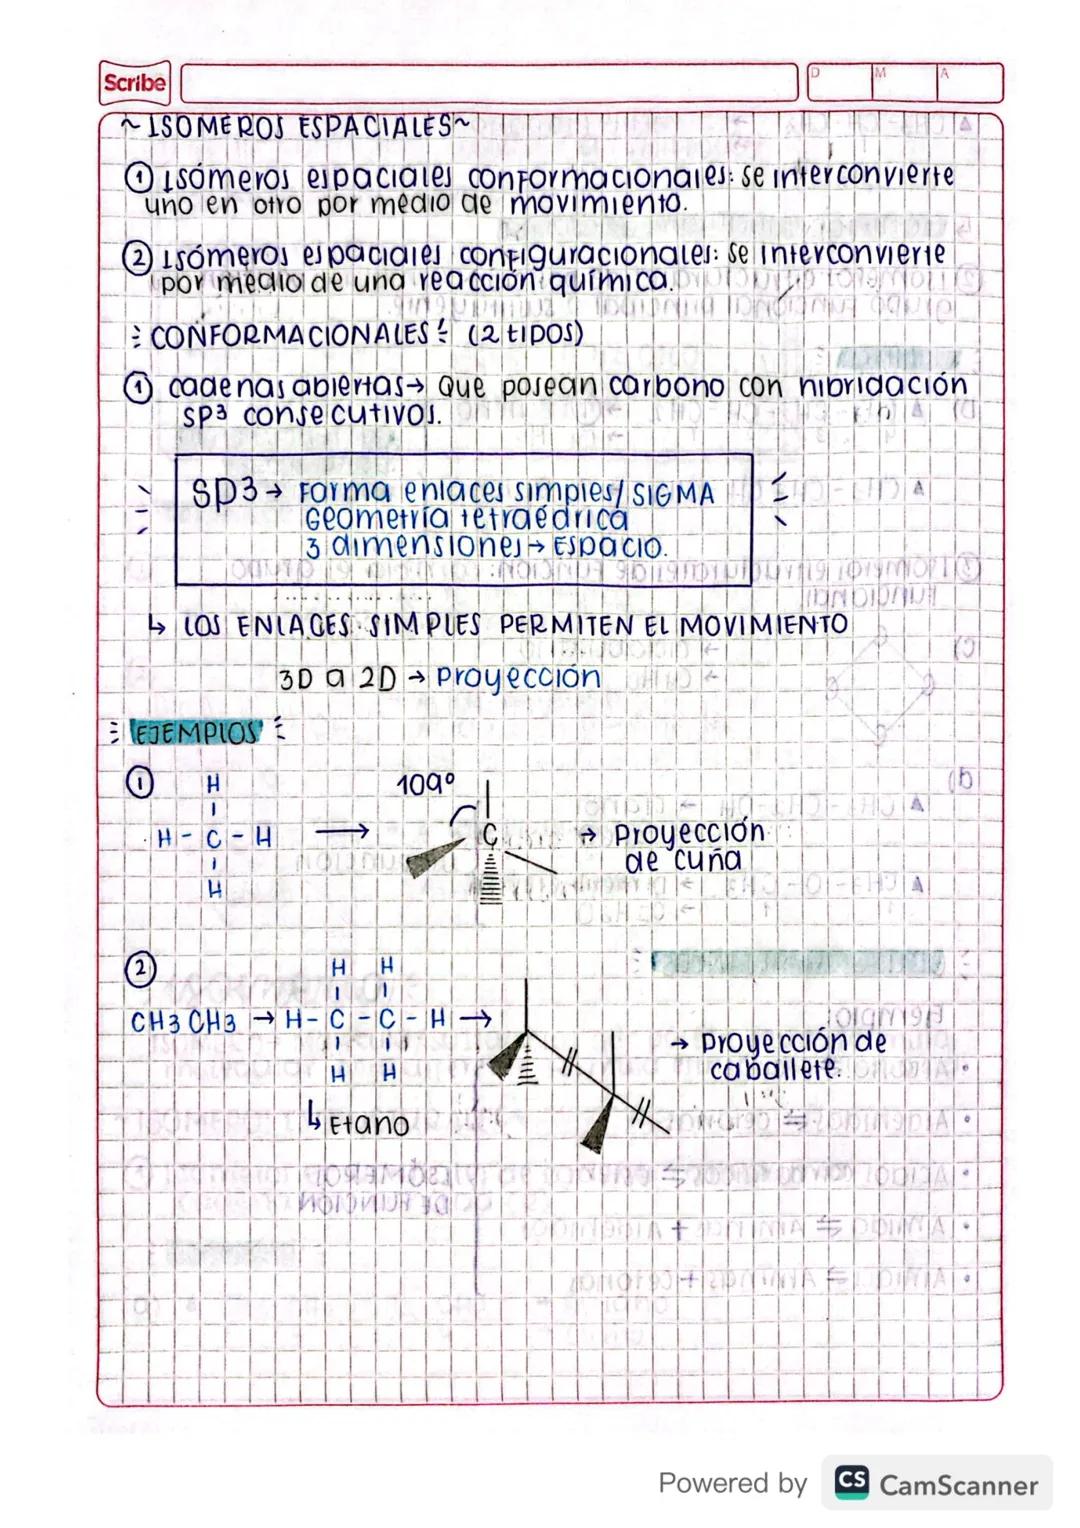 Scribe
D M A
~ISOMEROS ESPACIALES~
① Isómeros espaciales conformacionales: se interconvierte
uno en otro por medio de movimiento.
② Isómeros espaciales configuracionales: se interconvierte
por medio de una reacción química.
CONFORMACIONALES (2 TIPOS)
① cadenas abiertas → Que posean carbono con hibridación
SP3 consecutivos.
SP3 → Forma enlaces simples/SIGMA
Geometría tetraédrica
3 dimensiones → Espacio.
↳ LOS ENLACES SIMPLES PERMITEN EL MOVIMIENTO
3D a 2D → Proyección
EJEMPLOS
①
H
H - C - H →
H
109°
C
→ Proyección
de cuña
②
H H
CH3 CH3 → H - C - C - H →
H H
↳ Etano
→ Proyección de
caballete.
Powered by CS CamScanner